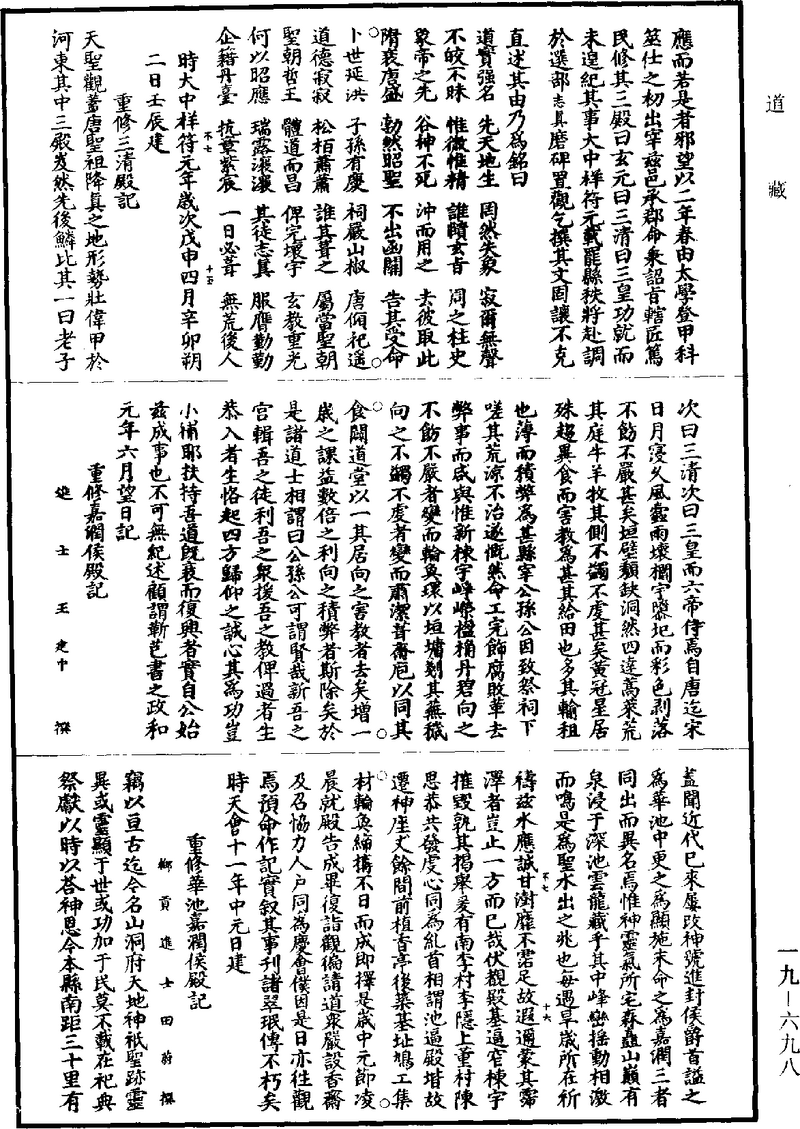 道藏
應而若是者邪望以二年春由太學登甲科
筮仕之初出宰茲邑承郡命奉詔旨轄匠篤
民修其三殿曰玄元曰三清曰三皇功就而
未遑紀其事大中祥符元載罷縣秩將赴調
於選部志具磨碑置觀乞撰其文固讓不克
直述其由乃為銘曰
道實强名 先天地生 罔然失象 寂爾無聲
不皎不昧 惟微惟精 誰賾玄旨 周之柱史
象帝之先 谷神不死 沖而用之 去彼取此
隋衰唐盛 勃然昭聖 不出函關 告其受命
卜世延洪 子孫有慶 祠嚴山椒 唐傾祀遥
道德寂寂 松栢蕭蕭 誰其葺之 屬當聖朝
聖朝哲王 體道而昌 俾完壞宇 玄教重光
何以昭應 瑞露瀼瀼 其徒志真 服膺勤勤
企籍丹臺 抗章紫宸 一日必葺 無荒後人
不七 十五
時大中祥符元年歲次戊申四月辛卯朔
二日壬辰建
重修三清殿記
天聖觀蓋唐聖祖降真之地形勢壯偉甲於
河東其中三殿岌然先後鱗比其一曰老子
次曰三清次曰三皇而六帝侍焉自唐迄宋
日月寖久風霾雨壞欄宇隳圮而彩色剥落
不飭不嚴甚矣垣壁頽缺洞然四達蒿萊荒
其庭牛羊牧其側不蠲不虔甚矣黄冠星居
殊超異食而害教為甚其給田也多其輸租
也薄而積弊為甚縣宰公孫公因致祭祠下
嗟其荒涼不治遂慨然命工完飾腐敗葦去
弊事而咸與惟新棟宇崢嶸楹桷丹碧向之
不飭不嚴者變而輪奐環以垣墉剗其蕪穢
向之不蠲不虔者變而肅潔葺齋庖以同其
食闢道堂以一其居向之害教者去矣增一
歲之課益數倍之利向之積弊者斯除矣於
是諸道士相謂曰公孫公可謂賢哉新吾之
宫輯吾之徒利吾之衆援吾之教俾過者生
恭入者生恪起四方歸仰之誠心其為功豈
小補耶扶持吾道既衰而復興者實自公始
茲成事也不可無紀述顧謂靳芑書之政和
元年六月望日記
重修嘉潤侯殿記
處士王定中撰
蓋聞近代已來屢改神號進封侯爵首謚之
為華池中更之為顯施末命之為嘉潤三者
同出而異名焉惟神靈氣所宅森矗山巔有
泉浸于深池雲龍藏乎其中峰巒摇動相激
而鳴是為聖水出之兆也每遇旱歲所在祈
不七 十六
禱兹水應誠甘澍靡不霑足故遐邇蒙其霈
澤者豈止一方而已哉伏覩殿基逼窄棟宇
摧毁孰其揭舉爰有南李村李隱上董村陳
思恭共發虔心同為糺首相謂池逼殿堦故
遷神座丈餘間前植香亭後築基址鳩工集
材輪奐締搆不日而成即擇是歲中元節凌
晨就殿告成畢復詣觀徧請道衆嚴設香齋
及召恊力人户同為慶會僕因是日亦往觀
焉預命作記實叙其事刊諸翠珉傳不朽矣
時天會十一年中元日建
重修華池嘉潤侯殿記
鄉貢進士田蔚撰
竊以亘古迄今名山洞府天地神祇聖跡靈
異或靈顯于世或功加于民莫不載在祀典
祭獻以時以荅神恩今本縣南距三十里有
一九—六九八